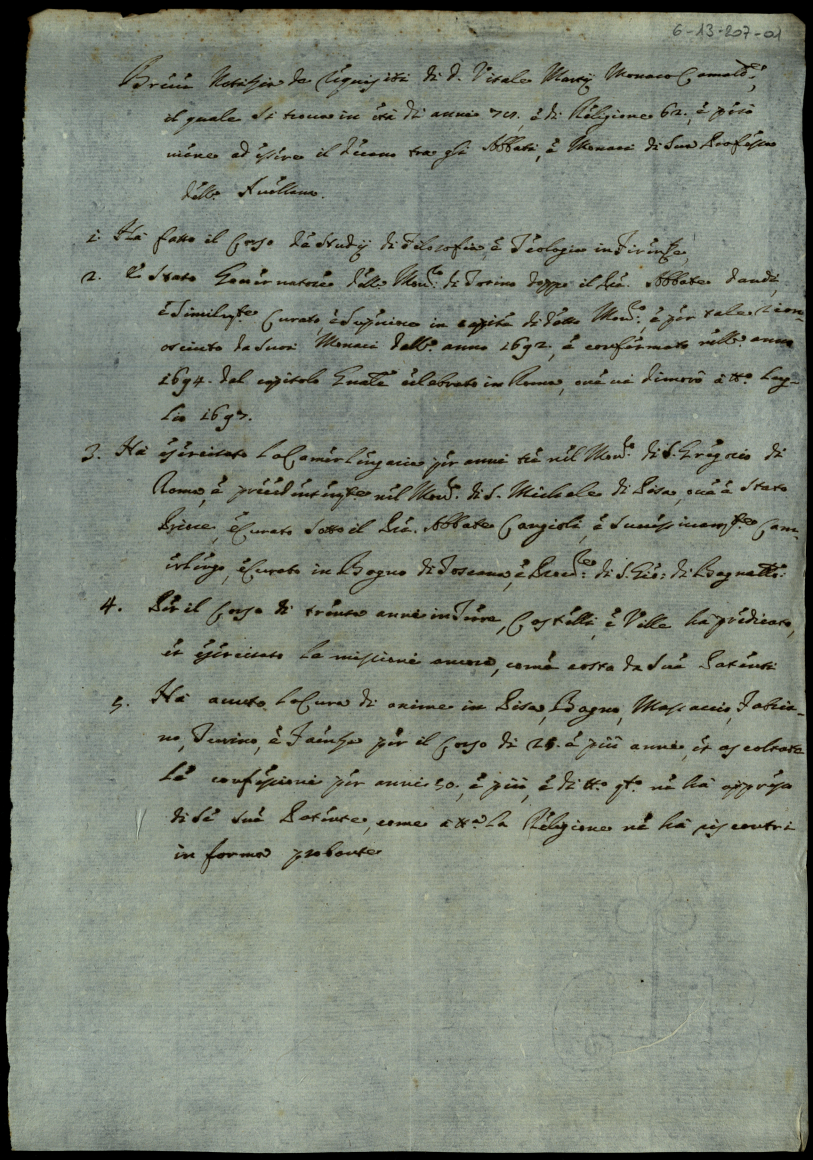 6-13-207-01
Breve Notitia de Requisiti di D. Vitale Martij Monaco Camald.e,
il quale si trova in età di anni 79. è di Religione 62., è però
viene ad essere il Decano tra gli Abbati, è Monaci di Sua Professione
dell' Avellana.
1. Hà fatto il Corso de Studij di Filosofia, è Teologia in Firenze,
2. È Stato Governatore dell Mon.o di Torino doppo il Abbate Dandi,
è Similm.te Curato, è Superiore in capite di detto Mon.o, è per tale ricon-
osciuto da Suoi Monaci dell' anno 1692. è confirmato nell' anno
1694. dal capitolo Gnale celebrato in Roma, ove vi dimorò à tt.o Lug-
lio 1697.
3. Hà esercitato La Camerlingaria per anni tre nel Mon.o di S. Gregorio di
Roma, è precedentem.te nel Mon.o di S. Michele di Pisa, ove è Stato
Priore, è Curato Sotto il Abbate Cangioli, è Successivam.te Cam-
erlingo, è Curato in Bagno di Toscana, è di S. Gio: di Bagnatto:
4. Per il Corso di trenta anni in Terre, Castelli, è Ville hà predicato,
et esercitato La missione ancora, come costa da Sue Patenti
5. Hà avuto La Cura di anime in Pisa, Bagno, Massaccio, Fabria-
no, Turino, è Faenza per il Corso di 25. è più anni, et ascoltate
Le confessioni per anni 50., è più, è di tt.o q.to ne hà appresso
di Se Sue Patente, come à tt.o La Religione ne hà riscontri
in forma probante